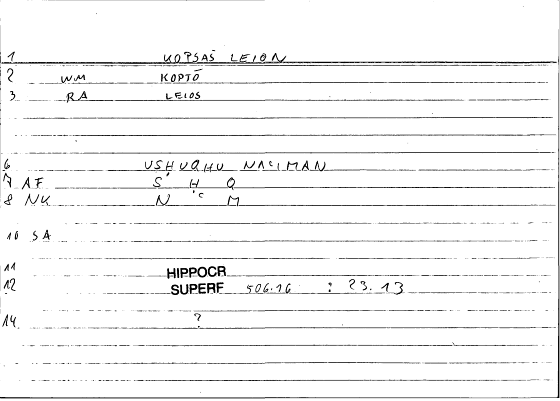 1 KOPSAS LEION
2 WM KOPTŌ
3 RA LEIOS
6 USHUQHU NAʿIMAN
7 AF S H Q
8 NK N ʿ M
10 SA
11 HIPPOCR
12 SUPERF 506.16 : 23.13
14 ?